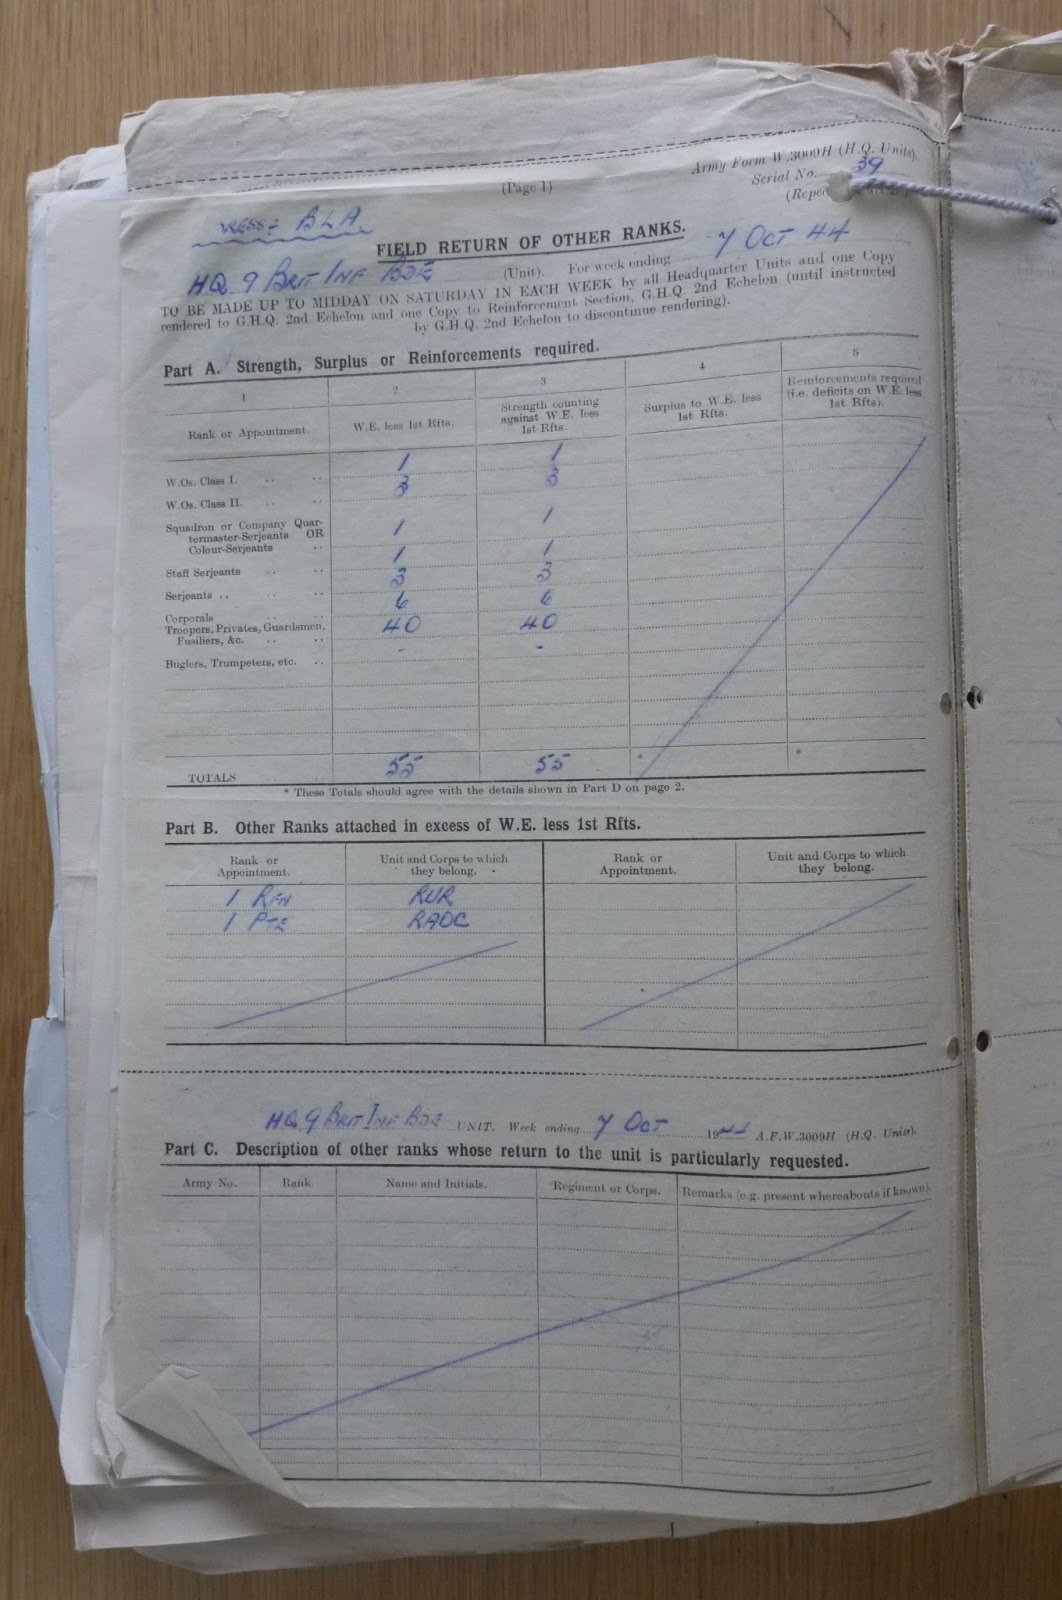 Army Form W.3009H (H.Q. Units).
(Page 1)
Serial No. 39
BLA
FIELD RETURN OF OTHER RANKS.
HQ 9 BRIT INF BDE (Unit). For week ending 7 OCT 44
TO BE MADE UP TO MIDDAY ON SATURDAY IN EACH WEEK by all Headquarter Units and one Copy
rendered to G.H.Q. 2nd Echelon and one Copy to Reinforcement Section, G.H.Q. 2nd Echelon (until instructed
by G.H.Q. 2nd Echelon to discontinue rendering).
Part A. Strength, Surplus or Reinforcements required.
1 2 3 4 5
Rank or Appointment. W.E. less 1st Rfts. Strength counting against W.E. less 1st Rfts. Surplus to W.E. less 1st Rfts. Reinforcements required (i.e. deficits on W.E. less 1st Rfts).
W.Os. Class I. .. .. 1 1
W.Os. Class II. .. .. 3 3
Squadron or Company Quar-
termaster-Serjeants OR
Colour-Serjeants .. 1 1
Staff Serjeants .. .. 1 1
Serjeants .. .. .. 3 3
Corporals .. .. 6 6
Troopers, Privates, Guardsmen,
Fusiliers, &c. .. .. 40 40
Buglers, Trumpeters, etc. .. - -
TOTALS .. .. 55 55 * *
* These Totals should agree with the details shown in Part D on page 2.
Part B. Other Ranks attached in excess of W.E. less 1st Rfts.
Rank or Appointment. Unit and Corps to which they belong. Rank or Appointment. Unit and Corps to which they belong.
1 RFN RUR
1 PTE RAOC
HQ 9 BRIT INF BDE UNIT. Week ending 7 OCT 1944 A.F.W.3009H (H.Q. Units).
Part C. Description of other ranks whose return to the unit is particularly requested.
Army No. Rank. Name and Initials. Regiment or Corps. Remarks (e.g. present whereabouts if known).